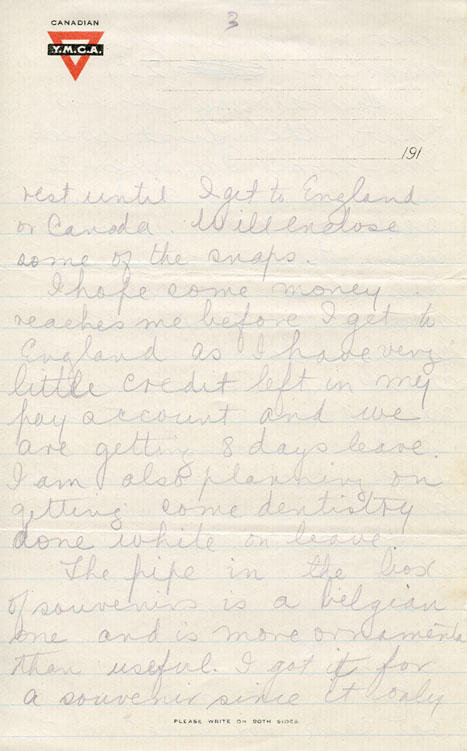 CANADIAN
Y.M.C.A.
3
191
rest until I get to England
or Canada. Will enclose
some of the snaps.
I hope some money
reaches me before I get to
England as I have very
little credit left in my
pay account and we
are getting 8 days leave.
I am also planning on
getting some dentistry
done while on leave.
The pipe in the box
of souvenirs is a belgian
one and is more ornamental
than useful. I got it for
a souvenir since it only
PLEASE WRITE ON BOTH SIDES